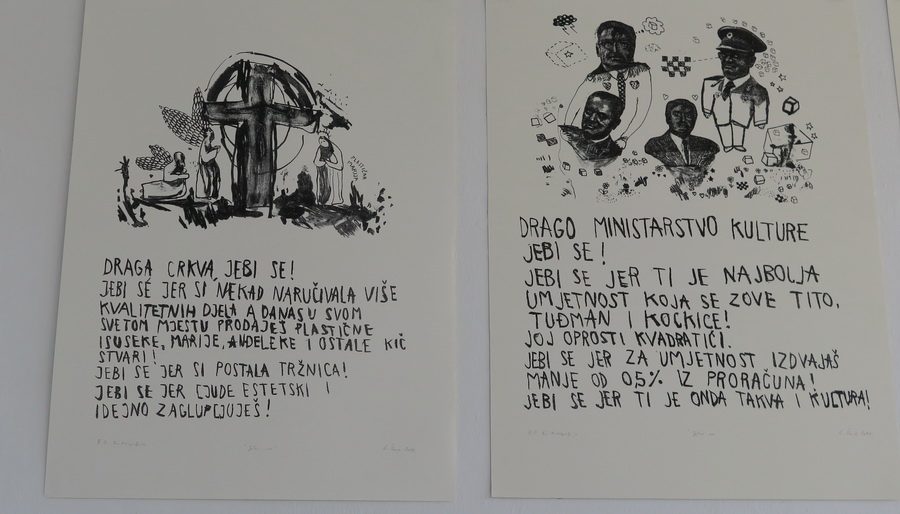 DRAGA CRKVA, JEBI SE!
JEBI SE JER SI NEKAD NARUČIVALA VIŠE
KVALITETNIH DJELA A DANAS U SVOM
SVETOM MJESTU PRODAJEŠ PLASTIČNE
ISUSEKE, MARIJE, ANĐELEKE I OSTALE KIČ
STVARI!
JEBI SE JER SI POSTALA TRŽNICA!
JEBI SE JER LJUDE ESTETSKI I
IDEJNO ZAGLUPLJUJEŠ!
DRAGO MINISTARSTVO KULTURE
JEBI SE!
JEBI SE JER TI JE NAJBOLJA
UMJETNOST KOJA SE ZOVE TITO,
TUĐMAN I KOCKICE!
JOJ OPROSTI KVADRATIĆI.
JEBI SE JER ZA UMJETNOST IZDVAJAŠ
MANJE OD 0,5% IZ PRORAČUNA!
JEBI SE JER TI JE ONDA TAKVA I KULTURA!